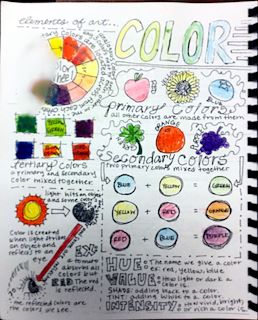 elements of art...
COLOR
Primary Colors
all other colors are made from them
ORANGE
Secondary Colors
Two primary colors mixed together
BLUE + YELLOW = GREEN
YELLOW + RED = ORANGE
RED + BLUE = PURPLE
YELLOW GREEN
Tertiary Colors
a primary and secondary
color mixed together.
light hits an object
and some color
Color is created
when light strikes
an object and
reflects to an
EX:
Tomato
absorbs all
Colors but
RED. The red
is reflected.
The reflected colors are
the colors we see.
HUE: The name we give a color
ex: red, yellow, blue
VALUE: How light or dark a
color is.
SHADE: adding black to a color
TINT: adding white to a color
INTENSITY: How vivid, bright,
or rich a color is.